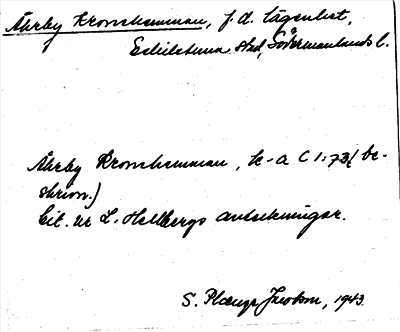 Åkrby Kronohemman, f.d. lägenhet,
Eskilstuna stad, Södermanlands l.
Åkrby Kronohemman, k-a C 1:73 (be-
skrivn.)
Cit. ur L. Hellbergs anteckningar.
S. Jacobson, 1943.